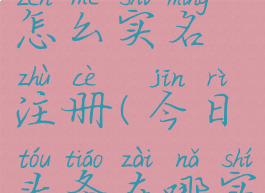 zěn me shí míng
怎么实名
zhù cè jīn rì
注册(今日
tóu tiáo zài nǎ shí
头条在哪实